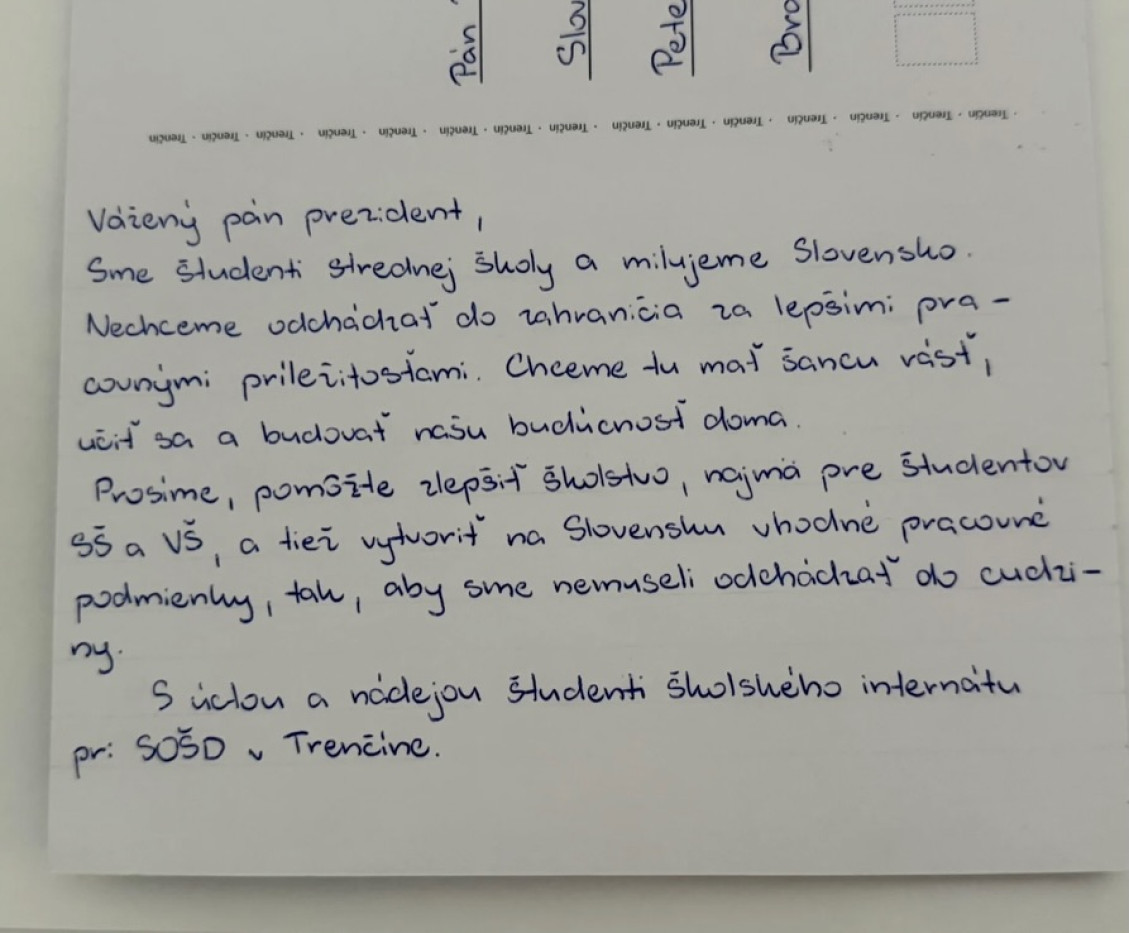 Pán
Slov
Pete
Bra
Trenčín · Trenčín · Trenčín · Trenčín · Trenčín · Trenčín · Trenčín · Trenčín · Trenčín · Trenčín · Trenčín · Trenčín · Trenčín · Trenčín · Trenčín
Vážený pán prezident,
Sme študenti strednej školy a milujeme Slovensko.
Nechceme odchádzať do zahraničia za lepšími pra-
covnými príležitosťami. Chceme tu mať šancu rásť,
učiť sa a budovať našu budúcnosť doma.
Prosíme, pomôžte zlepšiť školstvo, najmä pre študentov
SŠ a VŠ, a tiež vytvoriť na Slovensku vhodné pracovné
podmienky, tak, aby sme nemuseli odchádzať do cudzi-
ny.
S úctou a nádejou študenti školského internátu
pri SOŠD v Trenčíne.